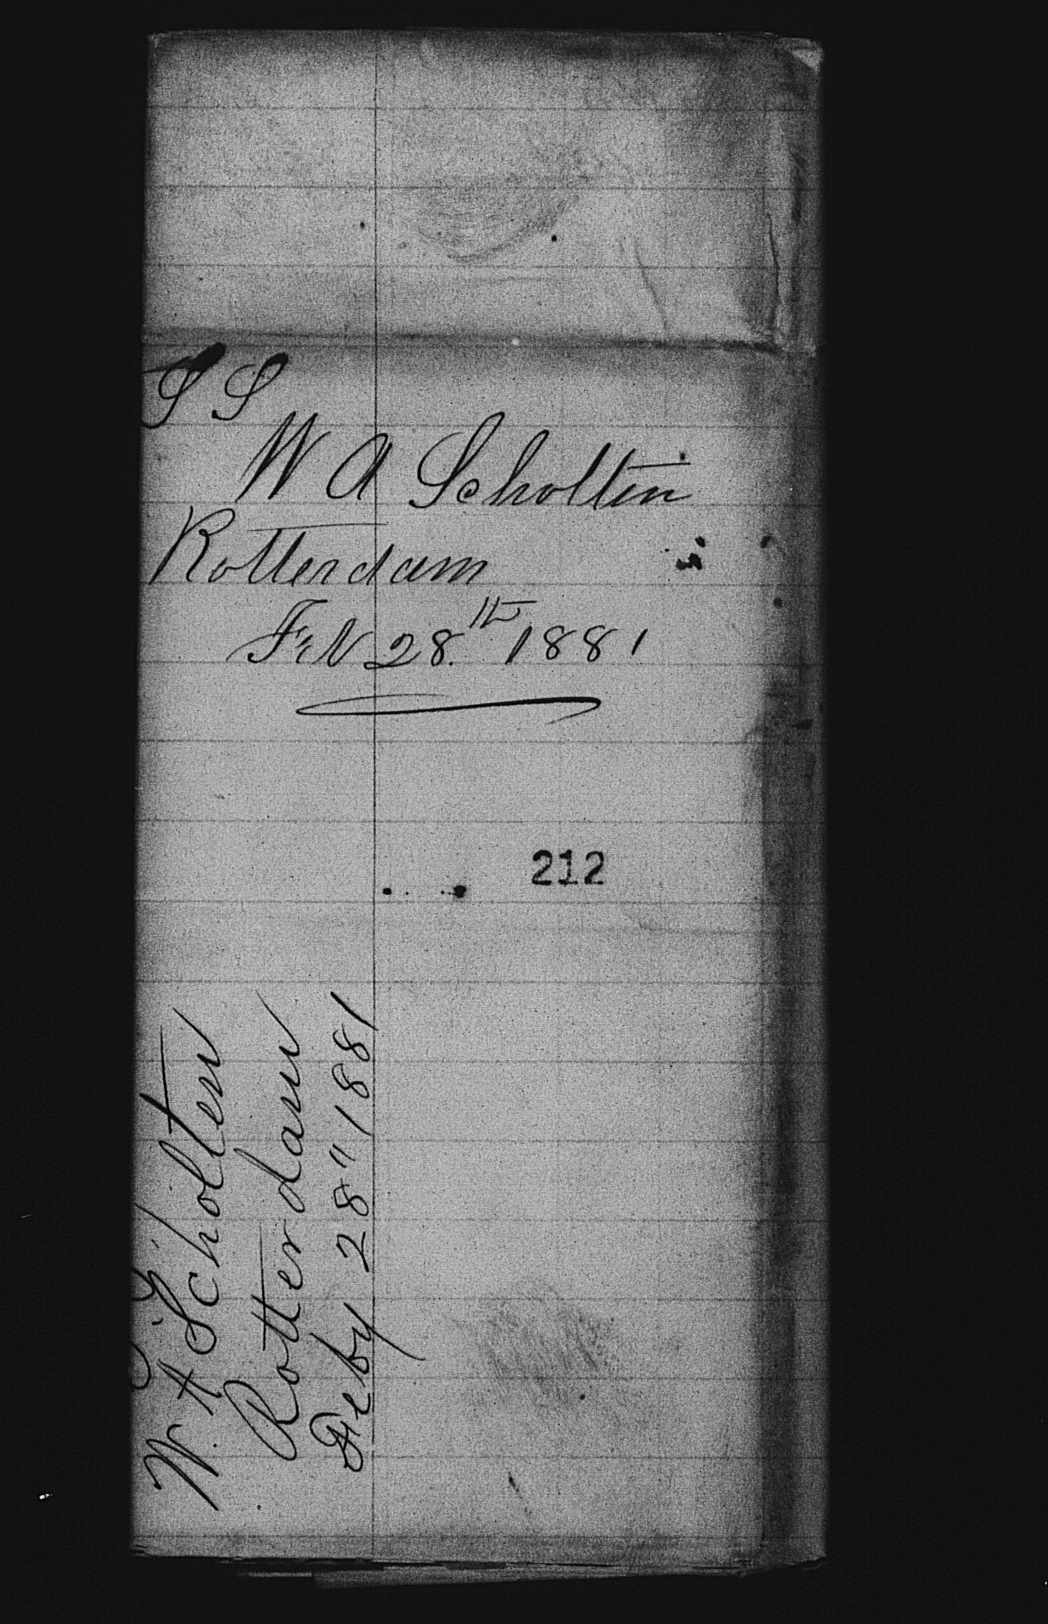 S S
W A Scholten
Rotterdam
Feb 28th 1881
212
S S
W. A Scholten
Rotterdam
Feby 28" 1881